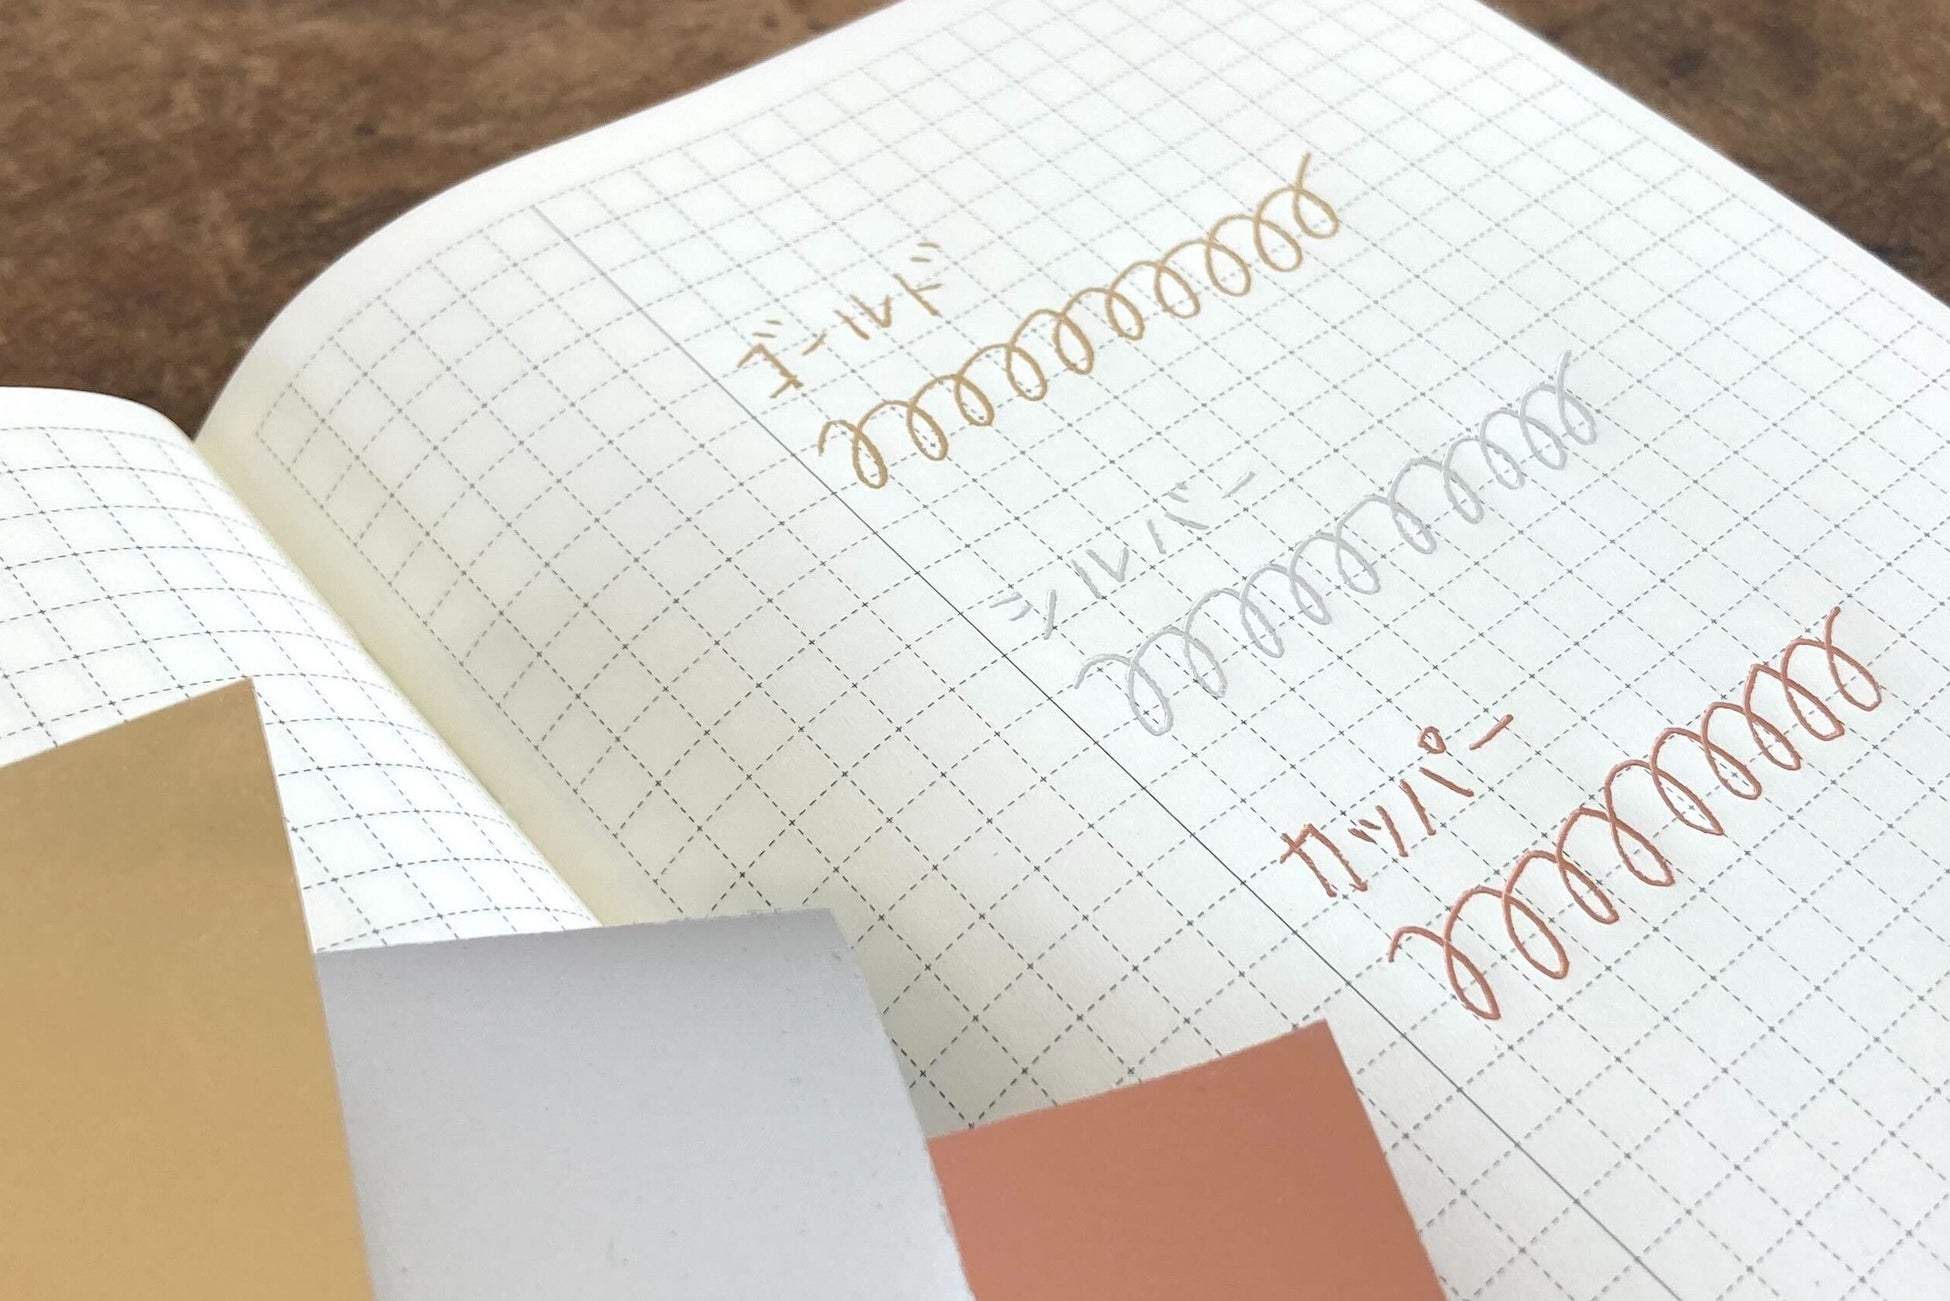 ゴールド
シルバー
カッパー